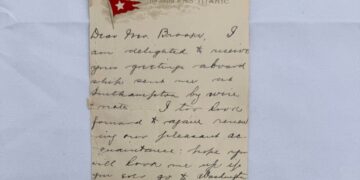 TITANIC
Dear Mrs. Brooks, I
am delighted to receive
your greetings aboard
ship sent me
Southampton by wire
note. I too look
forward to again renew
ing our pleasant ac
quaintance: hope you
will look me up if
you go to Washington